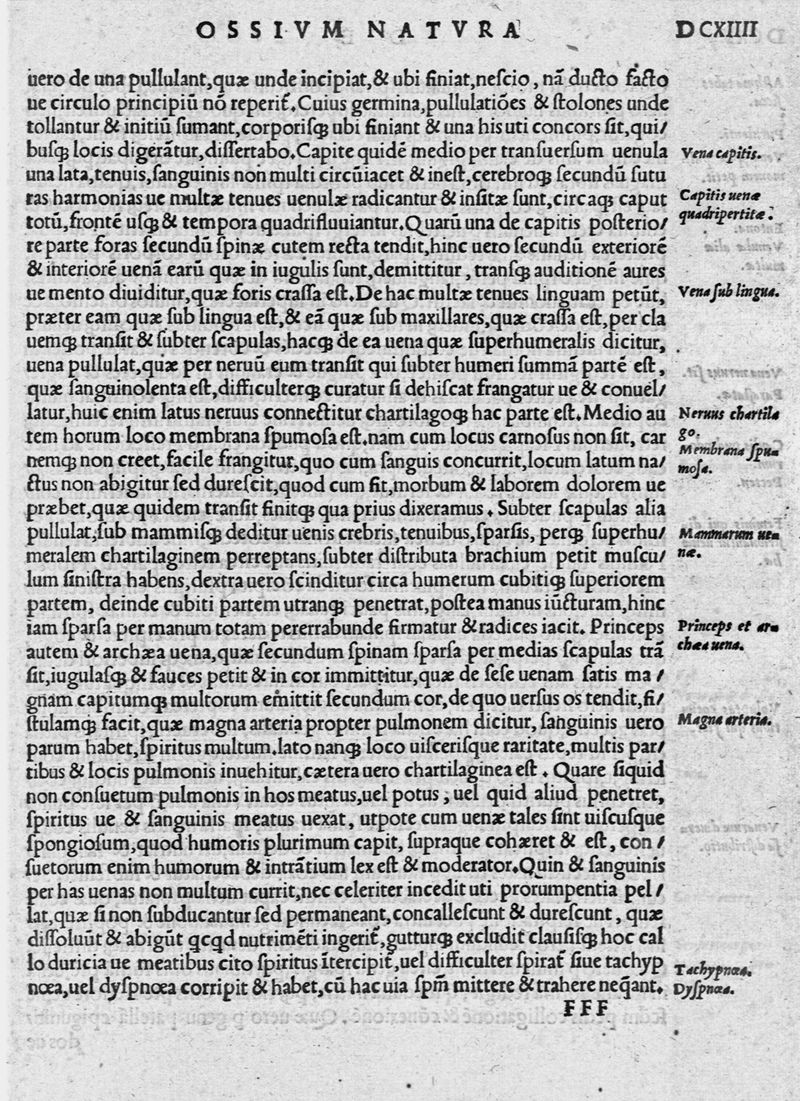 OSSIVM NATVRA DCXIIII
uero de una pullulant,quæ unde incipiat,& ubi finiat,nescio, nã ducto facto
ue circulo principiũ nõ reperit̃.Cuius germina,pullulatiões & stolones unde
tollantur & initiũ sumant,corporisq; ubi finiant & una his uti concors sit,qui/
busq; locis digerãtur,dissertabo.Capite quidẽ medio per transuersum uenula
Vena capitis.
una lata,tenuis,sanguinis non multi circũiacet & inest,cerebroq; secundũ sutu
ras harmonias ue multæ tenues uenulæ radicantur & insitæ sunt,circaq; caput
Capitis uenæ
quadripertitæ.
totũ,frontẽ usq; & tempora quadrifluuiantur.Quarũ una de capitis posterio/
re parte foras secundũ spinæ cutem recta tendit,hinc uero secundũ exteriorẽ
& interiorẽ uenã earũ quæ in iugulis sunt,demittitur, transq; auditionẽ aures
ue mento diuiditur,quæ foris crassa est.De hac multæ tenues linguam petũt,
Vena sub lingua.
præter eam quæ sub lingua est,& eã quæ sub maxillares,quæ crassa est,per cla
uemq; transit & subter scapulas,hacq; de ea uena quæ superhumeralis dicitur,
uena pullulat,quæ per neruũ eum transit qui subter humeri summã partẽ est,
quæ sanguinolenta est,difficulterq; curatur si dehiscat frangatur ue & conuel/
latur,huic enim latus neruus connectitur chartilagoq; hac parte est.Medio au
Neruus chartila
go.
tem horum loco membrana spumosa est.nam cum locus carnosus non sit, car
Membrana spu
mosa.
nemq; non creet,facile frangitur,quo cum sanguis concurrit,locum latum na/
ctus non abigitur sed durescit,quod cum fit,morbum & laborem dolorem ue
præbet,quæ quidem transit finitq; qua prius dixeramus. Subter scapulas alia
pullulat,sub mammisq; deditur uenis crebris,tenuibus,sparsis, perq; superhu/
Mammarum ue-
næ.
meralem chartilaginem perreptans,subter distributa brachium petit muscu/
lum sinistra habens,dextra uero scinditur circa humerum cubitiq; superiorem
partem, deinde cubiti partem utranq; penetrat,postea manus iũcturam,hinc
iam sparsa per manum totam pererrabunde firmatur & radices iacit. Princeps
Princeps et ar-
chæa uena.
autem & archæa uena,quæ secundum spinam sparsa per medias scapulas trã
sit,iugulasq; & fauces petit & in cor immittitur,quæ de sese uenam satis ma/
gnam capitumq; multorum emittit secundum cor,de quo uersus os tendit,fi/
stulamq; facit,quæ magna arteria propter pulmonem dicitur, sanguinis uero
Magna arteria.
parum habet,spiritus multum.lato nanq; loco uiscerisque raritate,multis par/
tibus & locis pulmonis inuehitur,cætera uero chartilaginea est. Quare siquid
non consuetum pulmonis in hos meatus,uel potus, uel quid aliud penetret,
spiritus ue & sanguinis meatus uexat, utpote cum uenæ tales sint uiscusque
spongiosum,quod humoris plurimum capit, supraque cohæret & est, con/
suetorum enim humorum & intrãtium lex est & moderator.Quin & sanguinis
per has uenas non multum currit,nec celeriter incedit uti prorumpentia pel/
lat,quæ si non subducantur sed permaneant,concallescunt & durescunt, quæ
dissoluũt & abigũt qcqd nutrimẽti ingerit̃,gutturq; excludit clausisq; hoc cal
lo duricia ue meatibus cito spiritus ĩtercipit̃,uel difficulter spirat̃ siue tachyp
Tachypnœa.
nœa,uel dyspnœa corripit & habet,cũ hac uia spm̃ mittere & trahere neq̃ant.
Dyspnœa.
FFF